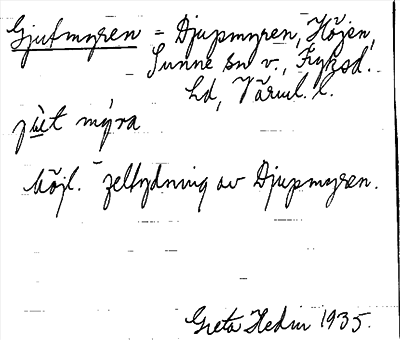 Gjutmyren = Djupmyren, Höjen,
Sunne sn v., Fryksd.
hd, Värml. l.
jùt mýra
Möjl. feltydning av Djupmyren.
Greta Hedin 1935.